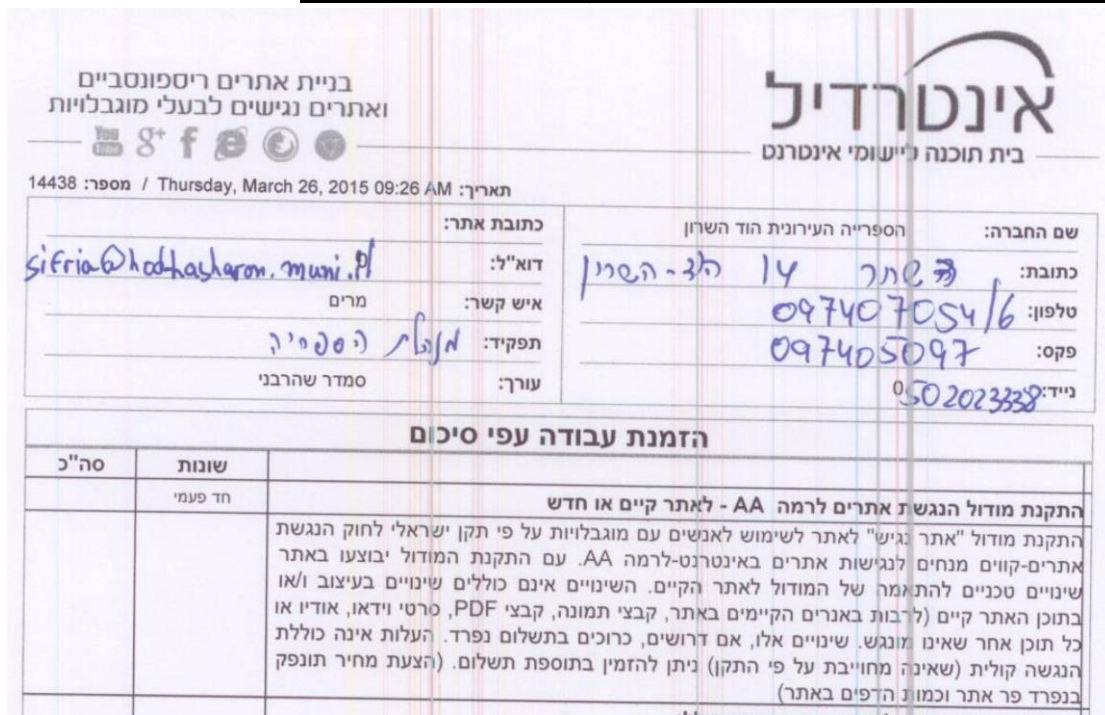 אינטרדיל
בית תוכנה ליישומי אינטרנט
בניית אתרים ריספונסביים
ואתרים נגישים לבעלי מוגבלויות
You Tube g+ f e
תאריך: Thursday, March 26, 2015 09:26 AM / מספר: 14438
שם החברה: הספרייה העירונית הוד השרון
כתובת: השחר 14 הוד-השרון
טלפון: 097407054/6
פקס: 097405097
נייד: 0502023338
כתובת אתר:
דוא"ל: sifria@hod-hasharon.muni.il
איש קשר: מרים
תפקיד: מנהלת הספריה
עורך: סמדר שהרבני
הזמנת עבודה עפי סיכום
שונות סה"כ
התקנת מודול הנגשת אתרים לרמה AA - לאתר קיים או חדש חד פעמי
התקנת מודול "אתר נגיש" לאתר לשימוש לאנשים עם מוגבלויות על פי תקן ישראלי לחוק הנגשת
אתרים-קווים מנחים לנגישות אתרים באינטרנט-לרמה AA. עם התקנת המודול יבוצעו באתר
שינויים טכניים להתאמה של המודול לאתר הקיים. השינויים אינם כוללים שינויים בעיצוב ו/או
בתוכן האתר קיים (לרבות באנרים הקיימים באתר, קבצי תמונה, קבצי PDF, סרטי וידאו, אודיו או
כל תוכן אחר שאינו מונגש. שינויים אלו, אם דרושים, כרוכים בתשלום נפרד. העלות אינה כוללת
הנגשה קולית (שאינה מחוייבת על פי התקן) ניתן להזמין בתוספת תשלום. (הצעת מחיר תונפק
בנפרד פר אתר וכמות הדפים באתר)